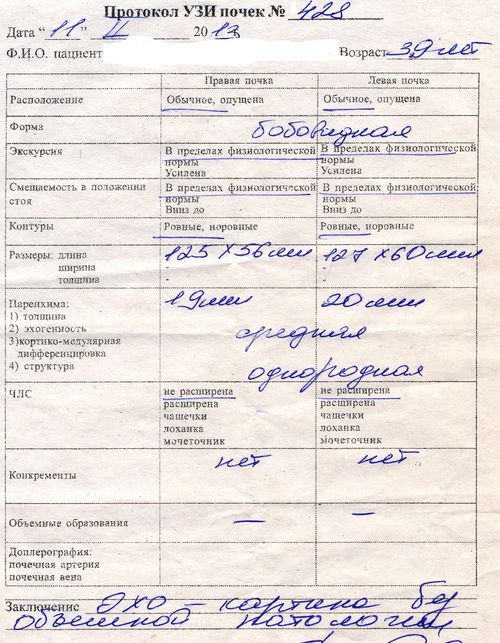 Протокол УЗИ почек № 428
Дата "11" II 2013
Ф.И.О. пациент Возраст 39 лет
Правая почка Левая почка
Расположение Обычное, опущена Обычное, опущена
Форма бобовидная
Экскурсия В пределах физиологической В пределах физиологической
нормы нормы
Усилена Усилена
Смещаемость в положении В пределах физиологической В пределах физиологической
стоя нормы нормы
Вниз до Вниз до
Контуры Ровные, норовные Ровные, норовные
Размеры: длина 125 х 56 мм 127 х 60 мм
ширина - -
толщина - -
Паренхима: 19 мм 20 мм
1) толщина
2) эхогенность средняя
3)кортико-медулярная
дифференцировка
4) структура однородная
ЧЛС не расширена не расширена
расширена расширена
чашечки чашечки
лоханка лоханка
мочеточник мочеточник
Конкременты нет нет
Объемные образования — —
Доплерография:
почечная артерия
почечная вена
Заключение Эхо - картина без
объемной патологии